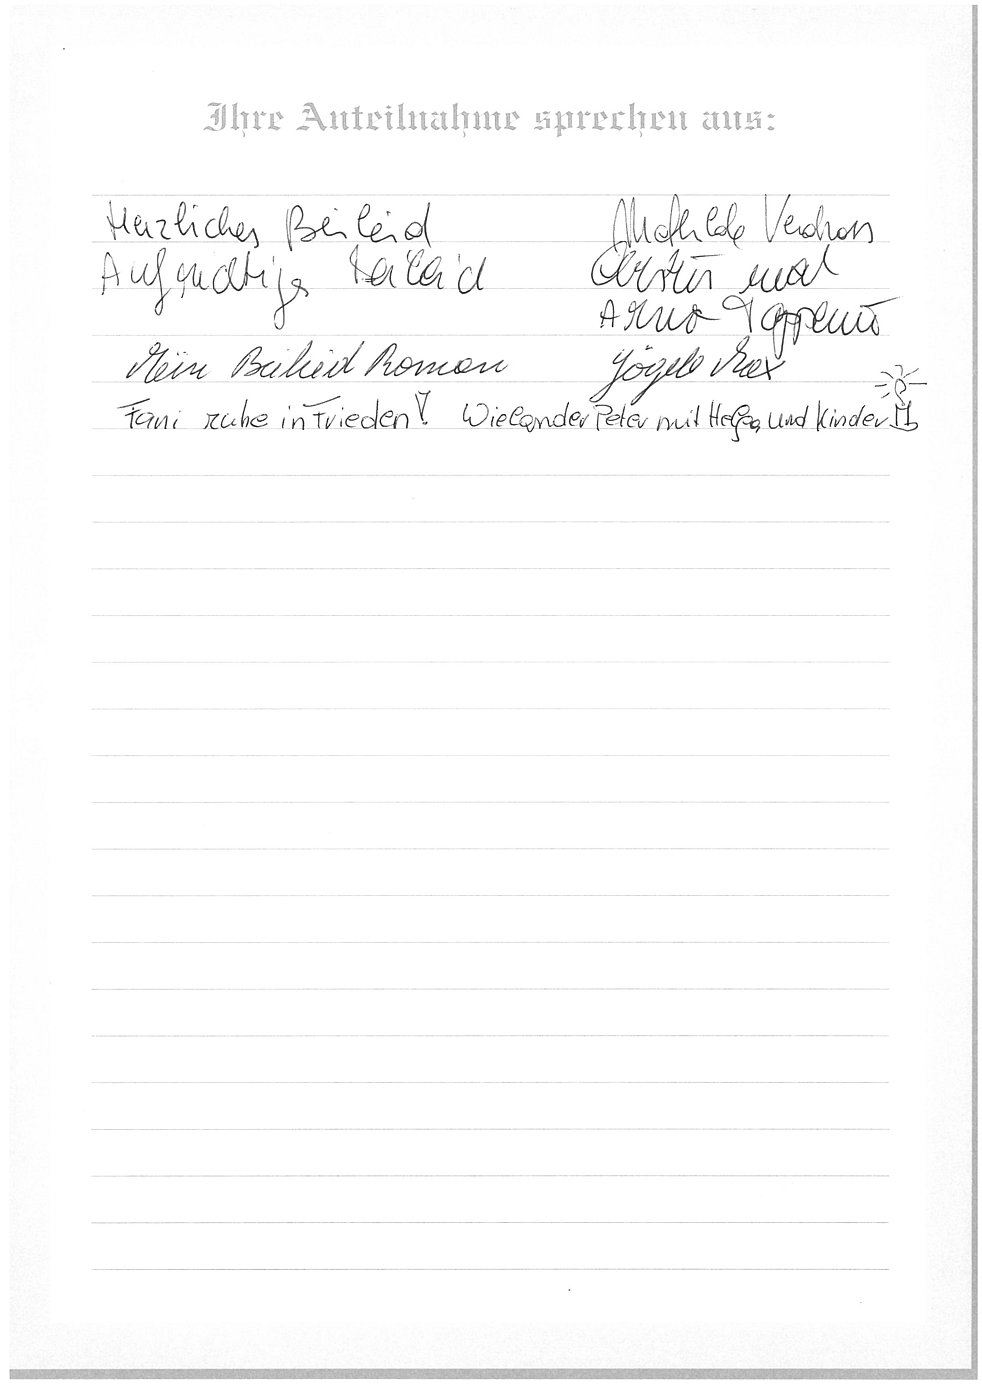 Ihre Anteilnahme sprechen aus:
Herzliches Beileid Mathilde Verdross
Aufrichtiges Beileid und
Arno Tappeiner
Mein Beileid Roman Jögele Max
Fani ruhe in Frieden! Wielander Peter mit Helga und Kinder